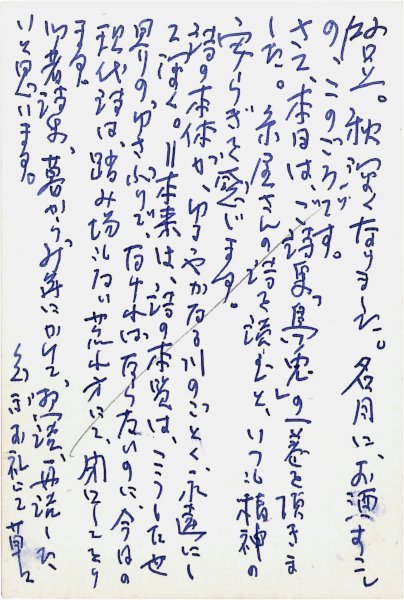 拝呈。秋深くなりました。名月に、お酒すこし
の、このごろです。
さて、本日は、ご詩集『烏兎』の一巻を頂きま
した。糸屋さんの詩を読むと、いつも精神の
安らぎを感じます。
詩の本体が、ゆるやかなる川のごとく、永遠にし
て深く。＝本来は、詩の本質は、こうした也
見りの、ゆさぶりで、なければならないのに、今日の
現代詩は、踏み場もない荒れ方にて、閉口しており
ます。
御著詩集、暮から にかけて、拝読、再読した
いと思います。
まずはお礼にて 草々